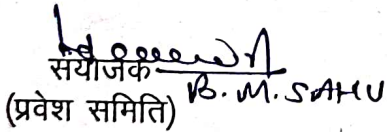 संयोजक
B. M. SAHU
(प्रवेश समिति)